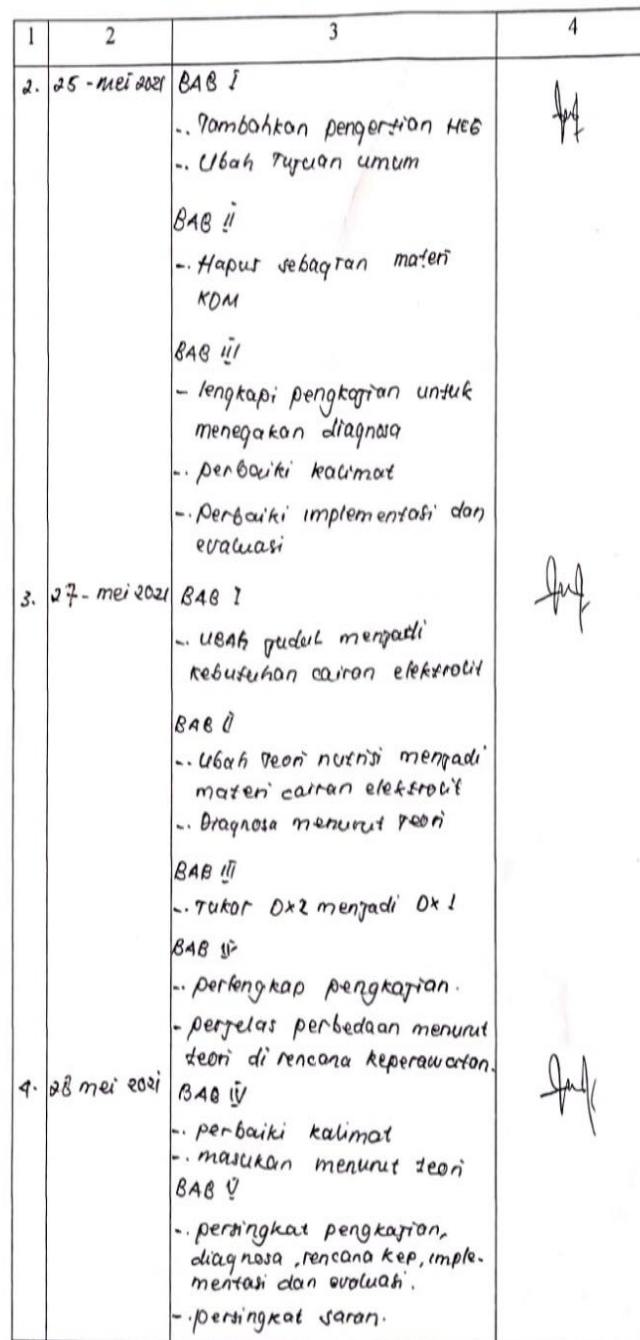 1 2 3 4
2. 25 - mei 2021 BAB I
-. Tambahkan pengertian HEG
-. Ubah Tujuan umum
BAB II
-. Hapus sebagian materi
KDM
BAB III
- lengkapi pengkajian untuk
menegakan diagnosa
-. perbaiki kalimat
-. Perbaiki implementasi dan
evaluasi
3. 27 - mei 2021 BAB I
-. UBAh judul menjadi
kebutuhan cairan elektrolit
BAB II
-. Ubah Teori nutrisi menjadi
materi cairan elektrolit
-. Diagnosa menurut Teori
BAB III
-. Tukar Dx2 menjadi Dx 1
BAB
-. perlengkap pengkajian.
- perjelas perbedaan menurut
teori di rencana keperawatan.
4. 28 mei 2021 BAB IV
-. perbaiki kalimat
-. masukan menurut teori
BAB V
-. persingkat pengkajian,
diagnosa, rencana kep, imple-
mentasi dan evaluasi.
-. persingkat saran.